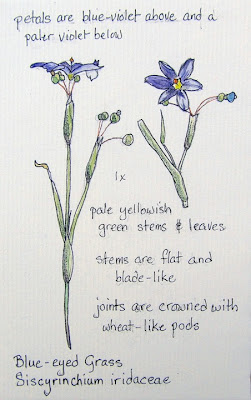 petals are blue-violet above and a
paler violet below
1x
pale yellowish
green stems & leaves
stems are flat and
blade-like
joints are crowned with
wheat-like pods
Blue-eyed Grass
Siscyrinchium iridaceae